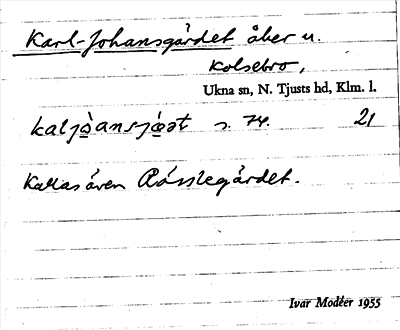 Karl-Johansgårdet åker u.
Kolsebro,
Ukna sn, N. Tjusts hd, Klm. l.
kaljòansjǫ̀ət s. 74. 21
Kallas även Rósslegårdet.
Ivar Modéer 1955